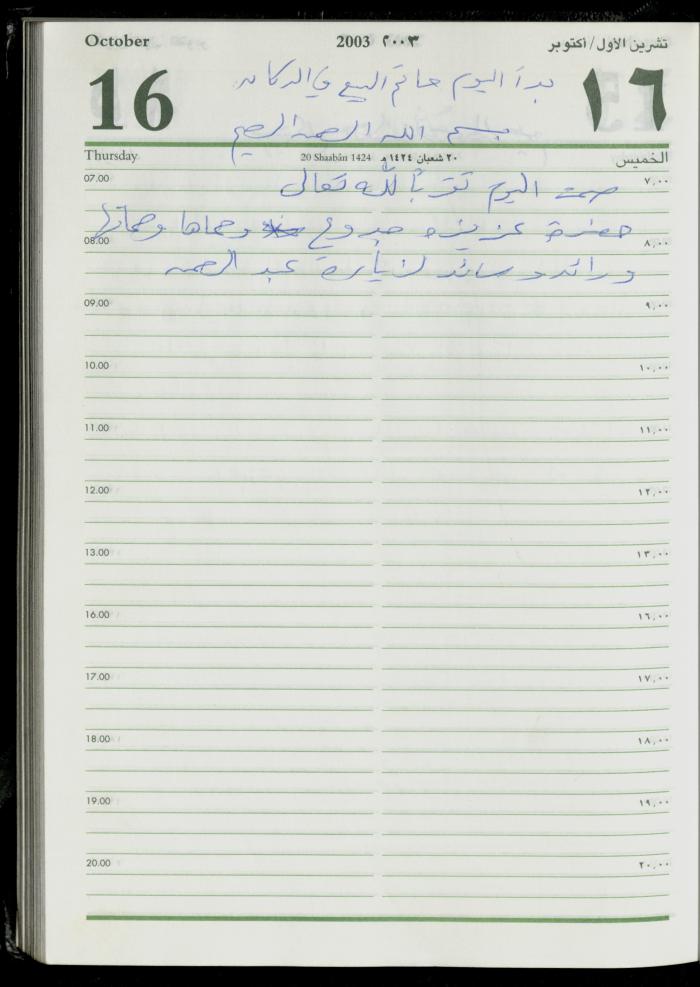 October 2003 ٢٠٠٣ تشرين الأول/أكتوبر
16 ١٦
بدأ اليوم حاتم البيع في الدكان
بسم الله الرحمن الرحيم
Thursday 20 Shaabân 1424 ٢٠ شعبان ١٤٢٤ هـ الخميس
07.00 ٧,٠٠
صمت اليوم تقرباً لله تعالى
حضرت عزيزه جدوع وحماها وحماتها
08.00 ٨,٠٠
ورائد وسائد لزيارة عبد الرحمن
09.00 ٩,٠٠
10.00 ١٠,٠٠
11.00 ١١,٠٠
12.00 ١٢,٠٠
13.00 ١٣,٠٠
16.00 ١٦,٠٠
17.00 ١٧,٠٠
18.00 ١٨,٠٠
19.00 ١٩,٠٠
20.00 ٢٠,٠٠